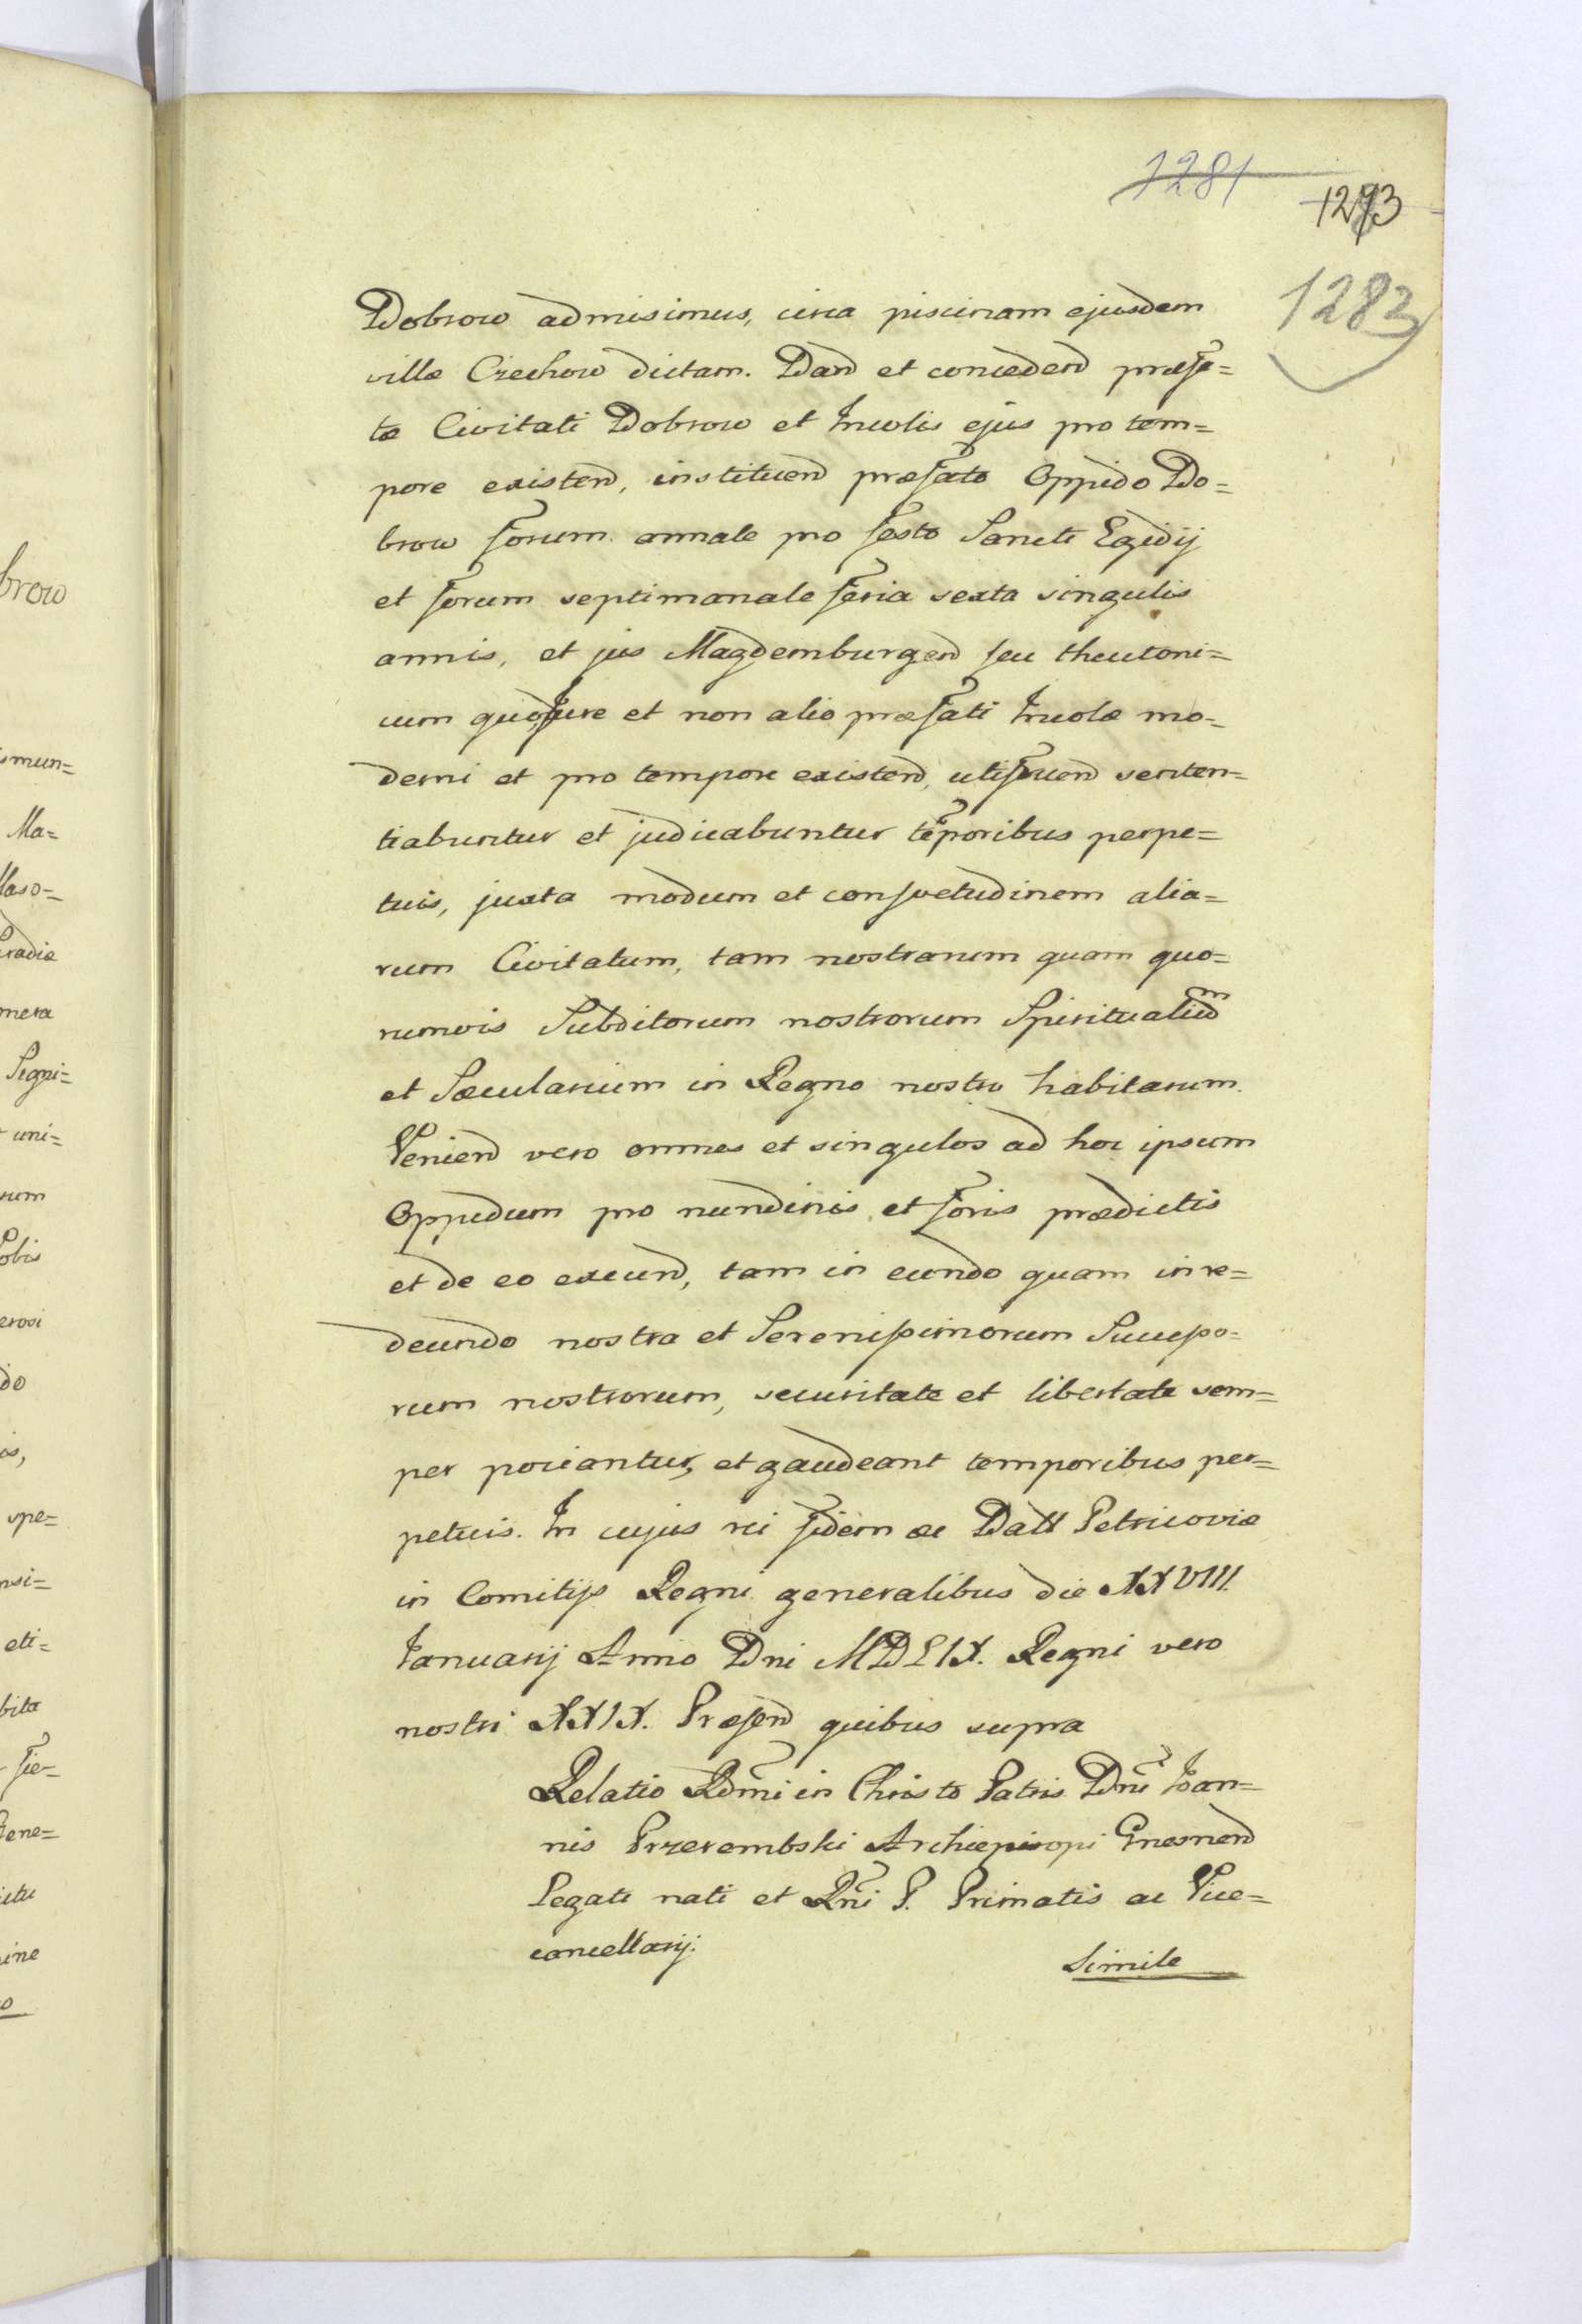 1281
1293
1283
Dobrow admisimus, circa piscinam ejusdem
villæ Czechow dictam. Dand et conceden præfa=
tæ Civitati Dobrow et Incolis ejus pro tem=
pore existen, instituen præfato Oppido Do=
brow forum annale pro festo Sancti Egidij
et forum septimanale feria sexta singulis
annis, et jus Magdemburgen seu theutoni=
cum quo Jure et non alio præfati Incolæ mo=
derni et pro tempore existen, uti fruen senten=
tiabuntur et judicabuntur tēporibus perpe=
tuis, juxta modum et consvetudinem alia=
rum Civitatum, tam nostrarum quam quo=
rumvis Subditorum nostrorum Spiritualium
et Sæcularium in Regno nostro habitarum.
Venien vero omnes et singulos ad hoc ipsum
Oppidum pro nundinis et foris prædictis
et de eo exeun, tam in eundo quam in re=
deundo nostra et Serenissimorum Successo=
rum nostrorum, securitate et libertate sem=
per pociantur, et gaudeant temporibus per=
petuis. In cujus rei fidem &c Datt Petricoviæ
in Comitijs Regni generalibus die XXVIII.
Januarij Anno Dni MDLIX. Regni vero
nostri XXIX. Præsen quibus supra
Relatio Rdmi in Christo Patris Dni Joan=
nis Przerembski Archiepiscopi Gnesnen
Legati nati et Rni P. Primatis ac Vice=
cancellarij.
Simile
brow
smun=
Ma=
Maso=
eradiæ
mera
Segni=
uni=
rum
obis
erosi
do
is,
spe=
nsi=
eti=
bita
fie=
Gene=
ictu
ine
o